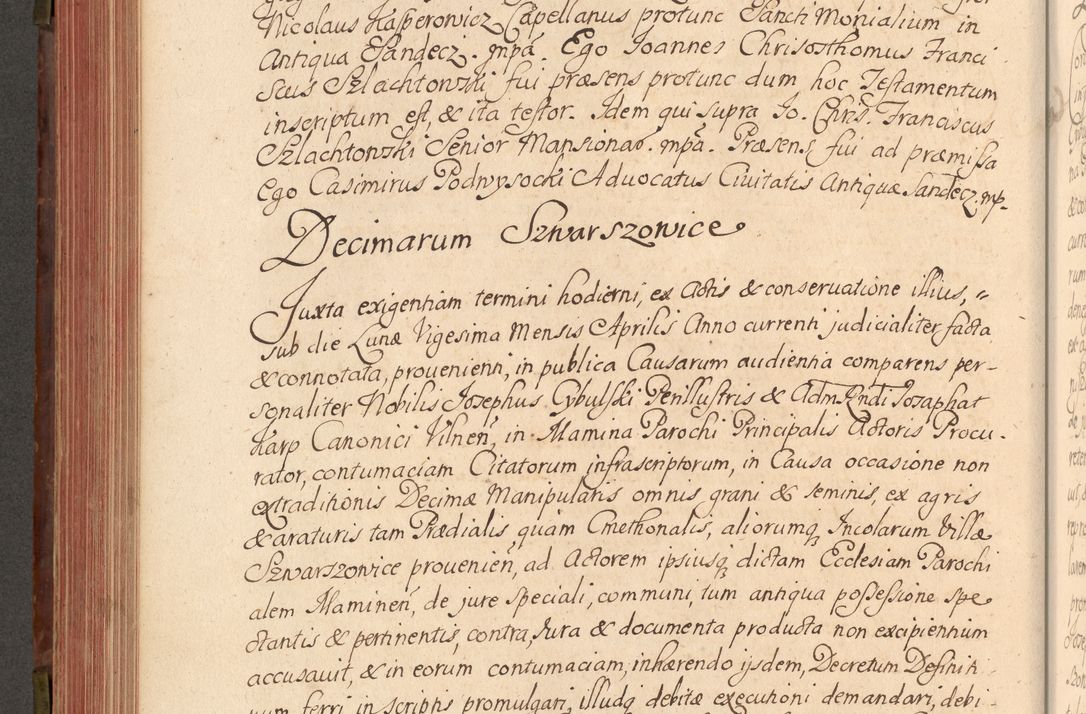 Nicolaus Kasperowicz Capellanus protunc Sancti Monialium in
Antiqua Sandecz. mpã. Ego Joannes Chrisosthomus Franci
scus Szlachtowski fui præsens protunc dum hoc Testamentum
inscriptum est, & ita testor. Idem qui supra Jo. Chris. Franciscus
Szlachtowski Senior Mansionar. mpã. Præsens fui ad præmissa
Ego Casimirus Podwysocki Advocatus Civitatis Antiquæ Sandecz. mp.
Decimarum Szwarszowice
Juxta exigentiam termini hodierni, ex Actis & conservatione illius, =
sub die Lunæ Vigesima Mensis Aprilis Anno currenti judicialiter facta
& connotata, provenienti, in publica Causarum audientia comparens per-
sonaliter Nobilis Josephus Cybulski Perillustris & Adm. Rndi Jozaphat
Karp Canonici Vilnen, in Mamina Parochi Principalis Actoris Procu-
rator, contumaciam Citatorum infrascriptorum, in Causa occasione non
extraditionis Decimæ Manipularis omnis grani & seminis, ex agris
& araturis tam Prædialis, quam Cmethonalis, aliorumq; Incolarum Villæ
Szwarszowice provenien, ad Actorem ipsiusq; dictam Ecclesiam Parochi
alem Maminen, de jure speciali, communi, tum antiqua possessione spe
ctantis & pertinentis, contra, Jura & documenta producta non excipientium
accusavit, & in eorum contumaciam, inhærendo ijsdem, Decretum Definiti
vum ferri in scriptis promulgari, illudq; debitæ executioni demandari, debi-